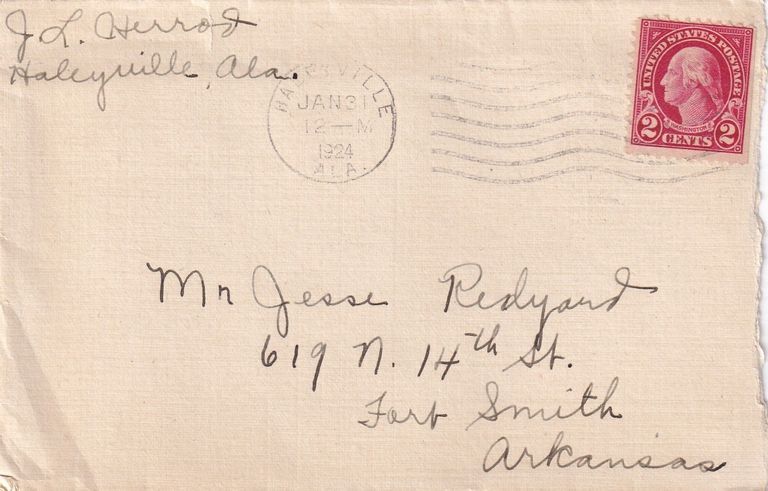 J L. Herrod
Haleyville, Ala.
HALEYVILLE
JAN 31
12—M
1924
ALA.
UNITED STATES POSTAGE
WASHINGTON
2 CENTS 2
Mr Jesse Redyard
619 N. 14th St.
Fort Smith
Arkansas